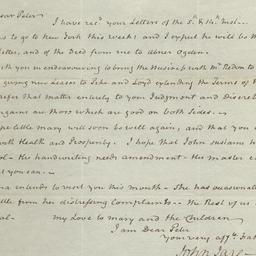 Dear Peter
I have recd. your Letters of the 5th. & 14th. Inst.
to go to New York this week; and I expect he will be
Letter, and of the Deed from me to Abner Ogden.
you in endeavouring to bring the Business with Mr.
giving new Leases to Sike and Loyd extending the Terms of
refer that matter entirely to your Judgment and Discret
gains are those which are good on both Sides.
little Mary will soon be well again, and that you
with Health and Prosperity. I hope that John
His handwriting needs amendment. His master
you can.
intends to visit you this month. She has occasional
from her distressing Complaints. The Rest of us
my Love to Mary and the Children
I am Dear Peter
Your very affte. Fath
John Jay